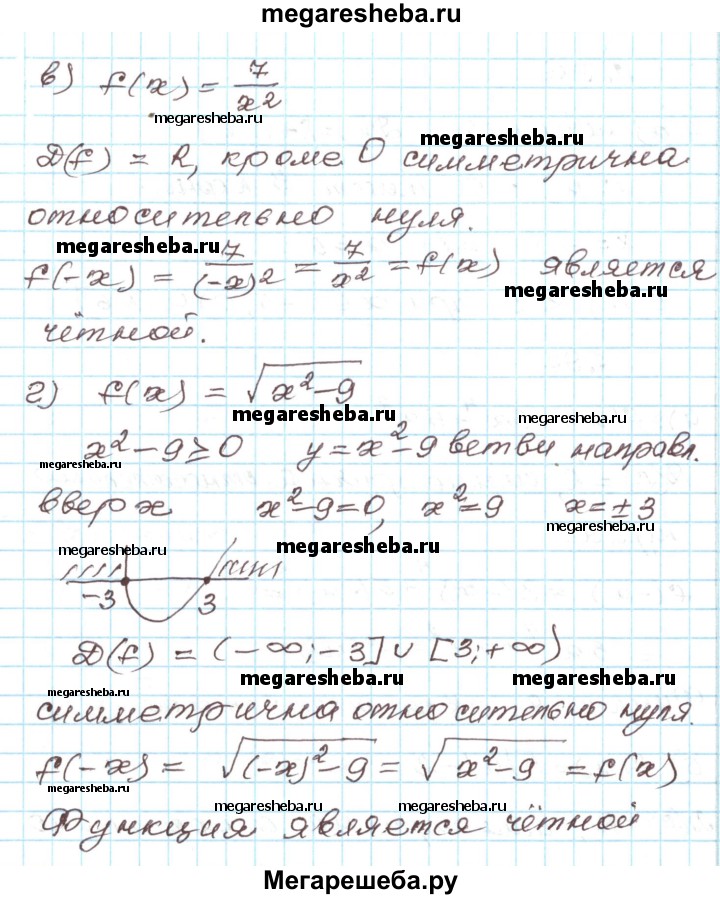 megaresheba.ru
в) f(x) = 7/x²
megaresheba.ru
D(f) = R, кроме 0 симметрична
megaresheba.ru
относительно нуля.
megaresheba.ru
f(-x) = 7/(-x)² = 7/x² = f(x) является
megaresheba.ru
чётной.
г) f(x) = √(x²-9)
megaresheba.ru megaresheba.ru
x²-9≥0 y=x²-9 ветви направл.
megaresheba.ru
вверх x²-9=0, x²=9 x=±3
megaresheba.ru megaresheba.ru
-3 3
D(f) = (-∞;-3]∪[3;+∞)
megaresheba.ru megaresheba.ru megaresheba.ru
симметрична относительно нуля.
f(-x) = √((-x)²-9) = √(x²-9) = f(x)
megaresheba.ru megaresheba.ru megaresheba.ru
Функция является чётной
Мегарешеба.ру